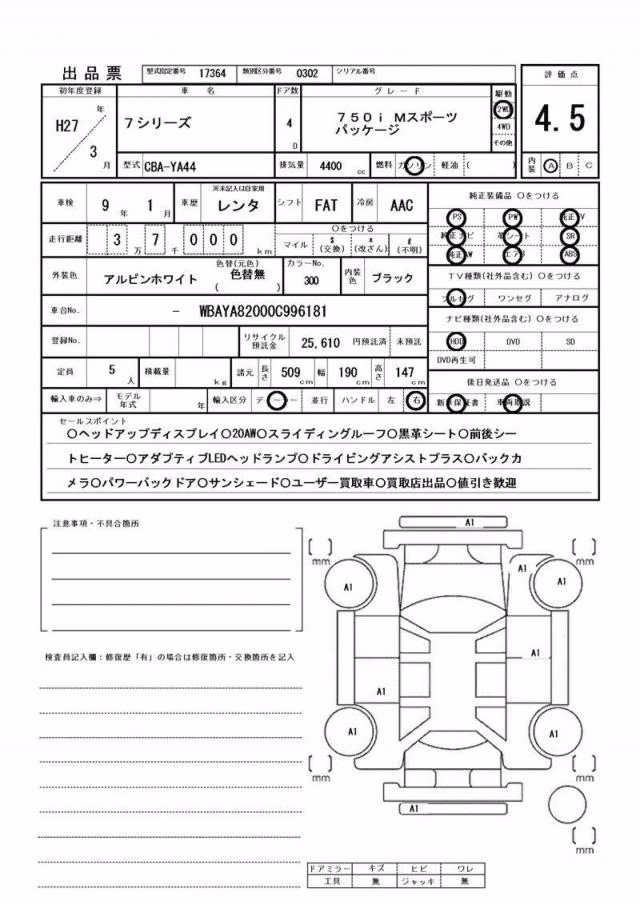 出品票 型式指定番号 17364 類別区分番号 0302 シリアル番号
評価点
4.5
内装 A B C
初年度登録 車名 ドア数 グレード 駆動
H27年 3月 7シリーズ 4D 750i Mスポーツパッケージ 2WD 4WD その他
型式 CBA-YA44 排気量 4400cc 燃料 ガソリン 軽油 ( )
車検 9年 1月 車歴 ※未記入は自家用 レンタ シフト FAT 冷房 AAC
〇をつける
走行距離 3万 7千 000km マイル $(交換) *(改ざん) #(不明)
外装色 アルピンホワイト 色替(元色) 色替無 ( カラーNo. 300 内装色 ブラック
車台No. - WBAYA82000C996181
登録No. リサイクル預託金 25,610 円預託済 未預託
定員 5人 積載量 kg 諸元 長さ 509cm 幅 190cm 高さ 147cm
輸入車のみ⇒ モデル年式 年 輸入区分 ディーラー 並行 ハンドル 左 右
純正装備品 〇をつける
PS PW 純正TV
純正ナビ 革シート SR
純正AW エアB ABS
TV種類(社外品含む) 〇をつける
フルセグ ワンセグ アナログ
ナビ種類(社外品含む) 〇をつける
HDD DVD SD
DVD再生可
後日発送品 〇をつける
新車保証書 車両取説
セールスポイント
〇ヘッドアップディスプレイ〇20AW〇スライディングルーフ〇黒革シート〇前後シー
トヒーター〇アダプティブLEDヘッドランプ〇ドライビングアシストプラス〇バックカ
メラ〇パワーバックドア〇サンシェード〇ユーザー買取車〇買取店出品〇値引き歓迎
注意事項・不具合箇所
検査員記入欄:修復歴「有」の場合は修復箇所・交換箇所を記入
A1
mm mm
A1 A1 A1
A1
A1
A1 A1
mm mm
A1
mm
ドアミラー キズ ヒビ ワレ
工具 無 ジャッキ 無